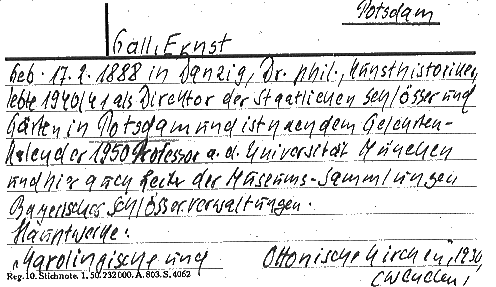 Potsdam
Gall, Ernst
Geb. 17.2.1888 in Danzig, Dr. phil., Kunsthistoriker,
lebte 1940/41 als Direktor der Staatlichen Schlösser und
Gärten in Potsdam und ist nach dem Gelehrten-
kalender 1950 Professor a.d. Universität München
und hier auch Leiter der Museums-Sammlungen
Bayerischer Schlösserverwaltungen.
Hauptwerke:
„Karolingische und Ottonische Kirchen", 1930,
Reg. 10. Stichnote. 1. 50. 232000. A. 803. S. 4062